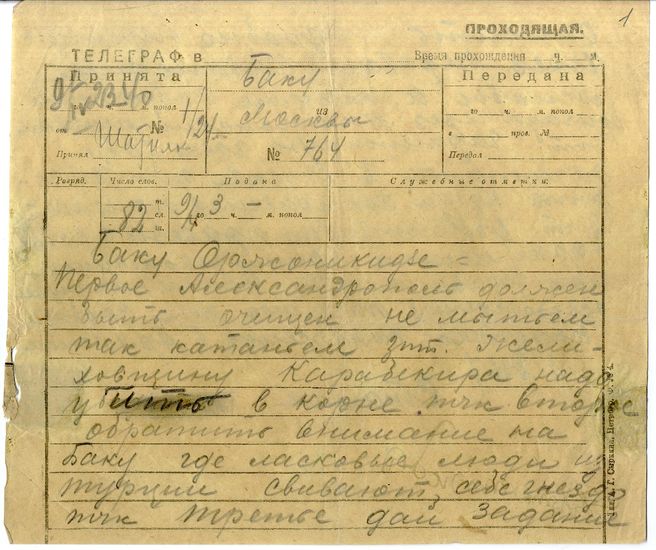 1
ПРОХОДЯЩАЯ.
ТЕЛЕГРАФ в
Время прохождения ч. м.
Принята
Баку
Передана
9/IV го 23 ч. 40 м. попол
из
го ч. м. попол
от
№ 1/24
Москвы
в пров. №
Принял
№ 764
Передал
Разряд.
Число слов.
Подана
Служебные отметки:
82
т.
сл.
ш.
9/4 го 3 ч. — м. попол
Баку Орджоникидзе =
Первое Александрополь должен
быть очищен не мытьем
так катаньем зпт. Жели-
ховщину Карабекира надо
убить в корне тчк Второе
обратить внимание на
Баку где ласковые люди из
турции свивают себе гнездо
тчк третье дай задание